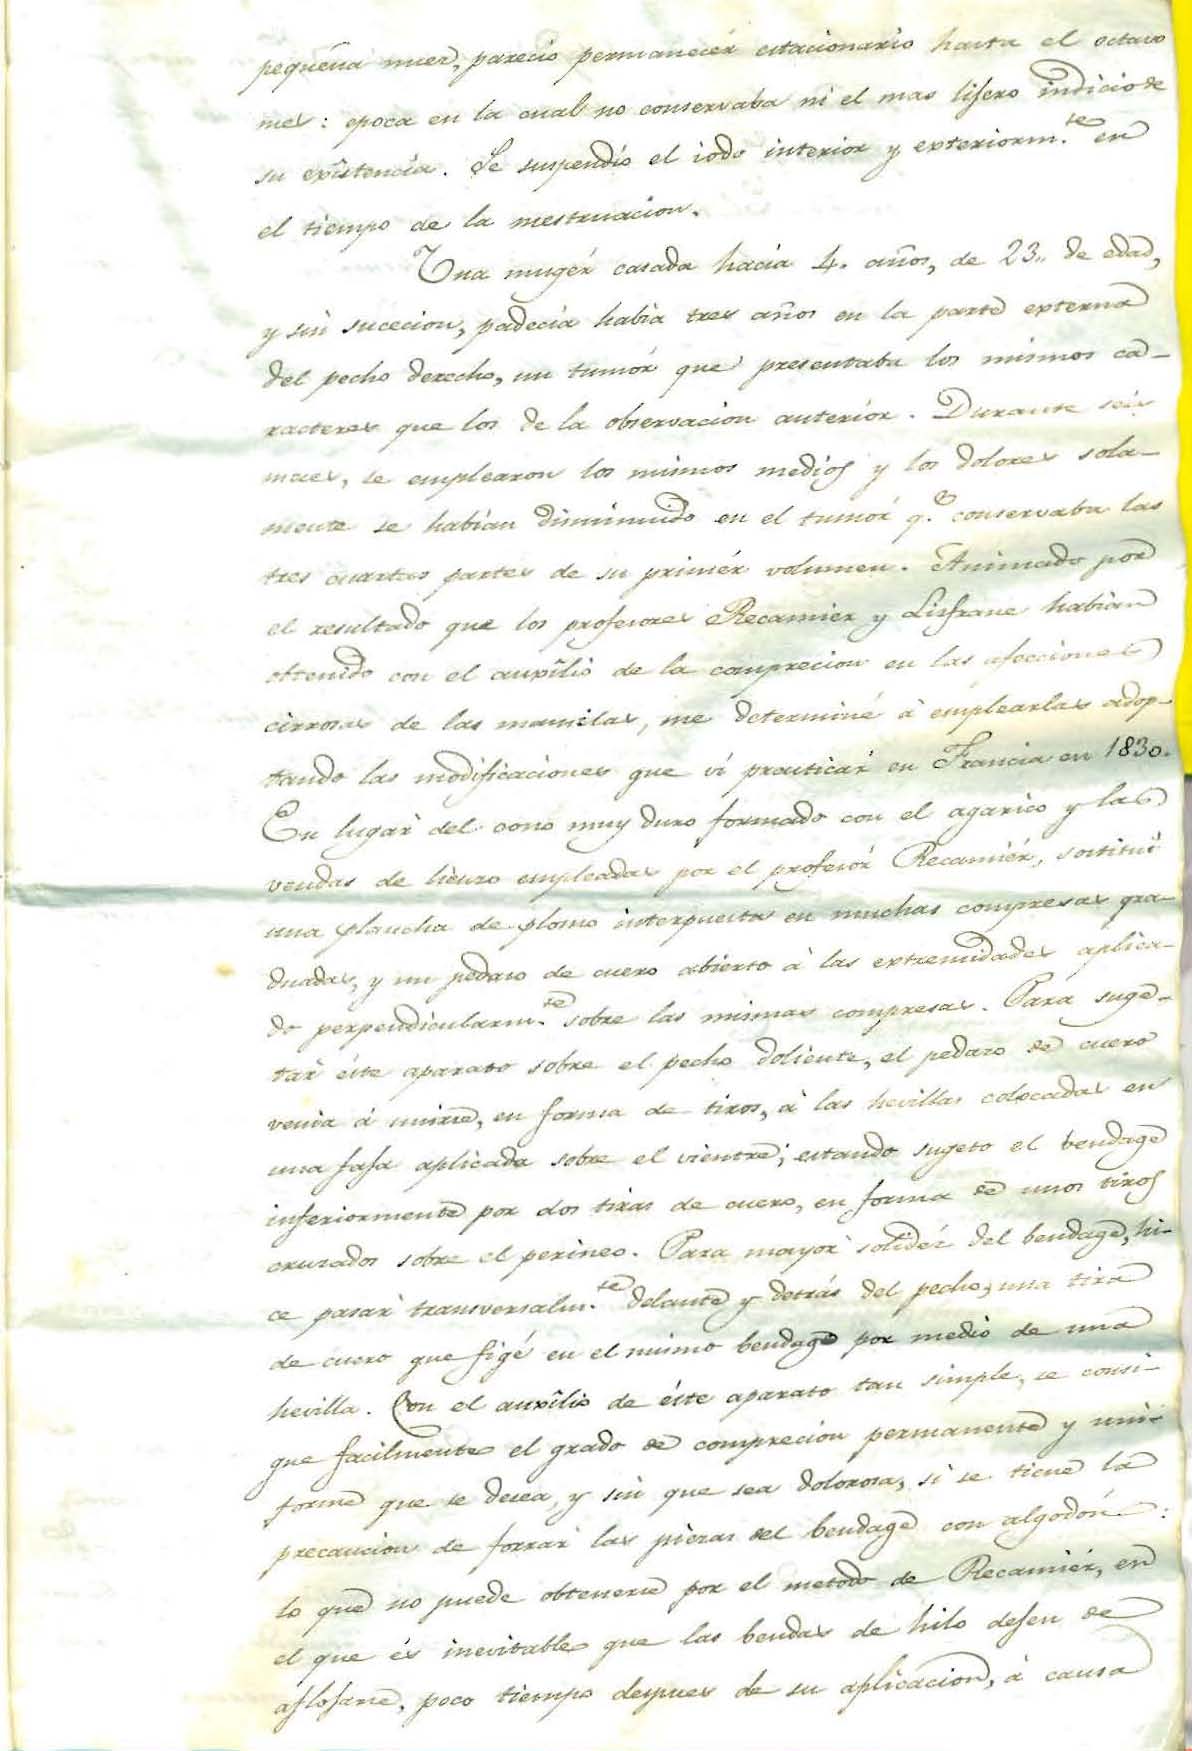 pequeña nuez, pareció permanecér estacionario hasta el octavo
mes: epoca en la cual no conservaba ni el mas lijero indicio de
su existencia. Se suspendió el iodo interior y exteriorm.te en
el tiempo de la mestruacion.
Una mugér casada hacia 4. años, de 23,, de edad,
y sin sucecion, padecia habia tres años en la parte externa
del pecho derecho, un tumór que presentaba los mismos ca-
racteres que los de la observacion anteriór. Durante seis
meses, se emplearon los mismos medios y los dolores sola-
mente se habian disminuido en el tumór q.e conservaba las
tres cuartas partes de su primér volumen. Animado por
el resultado que los profesores Recamier y Lisfranc habian
obtenido con el auxilio de la comprecion en las afecciones
cirrosas de las mamilas, me determiné à emplearlas adop-
tando las modificaciones que vi practicár en Francia en 1830.
En lugár del cono muy duro formado con el agarico y las
vendas de lienzo empleadas por el profesór Recamiér, sostitui
una plancha de plomo interpuesta en muchas compresas gra-
duadas, y un pedazo de cuero abierto à las extremidades aplica-
do perpendicularm.te sobre las mismas compresas. Para suge-
tár éste aparato sobre el pecho doliente, el pedazo de cuero
venia á unirse, en forma de tiros, à las hevillas colocadas en
una faja aplicada sobre el vientre; estando sugeto el bendage
inferiormente por dos tiras de cuero, en forma de unos tiros
cruzados sobre el perineo. Para mayór solidéz del bendage, hi-
ce pasár transversalm.te delante y detrás del pecho, una tira
de cuero que figé en el mismo bendage por medio de una
hevilla. Con el auxilio de éste aparato tan simple, se consi-
gue facilmente el grado de comprecion permanente y uni-
forme que se desea, y sin que sea dolorosa, si se tiene la
precaucion de forrár las piezas del bendage con algodón:
lo que no puede obtenerse por el metodo de Recamiér, en
el que és inevitable que las bendas de hilo dejen de
aflojarse, poco tiempo despues de su aplicacion, à causa